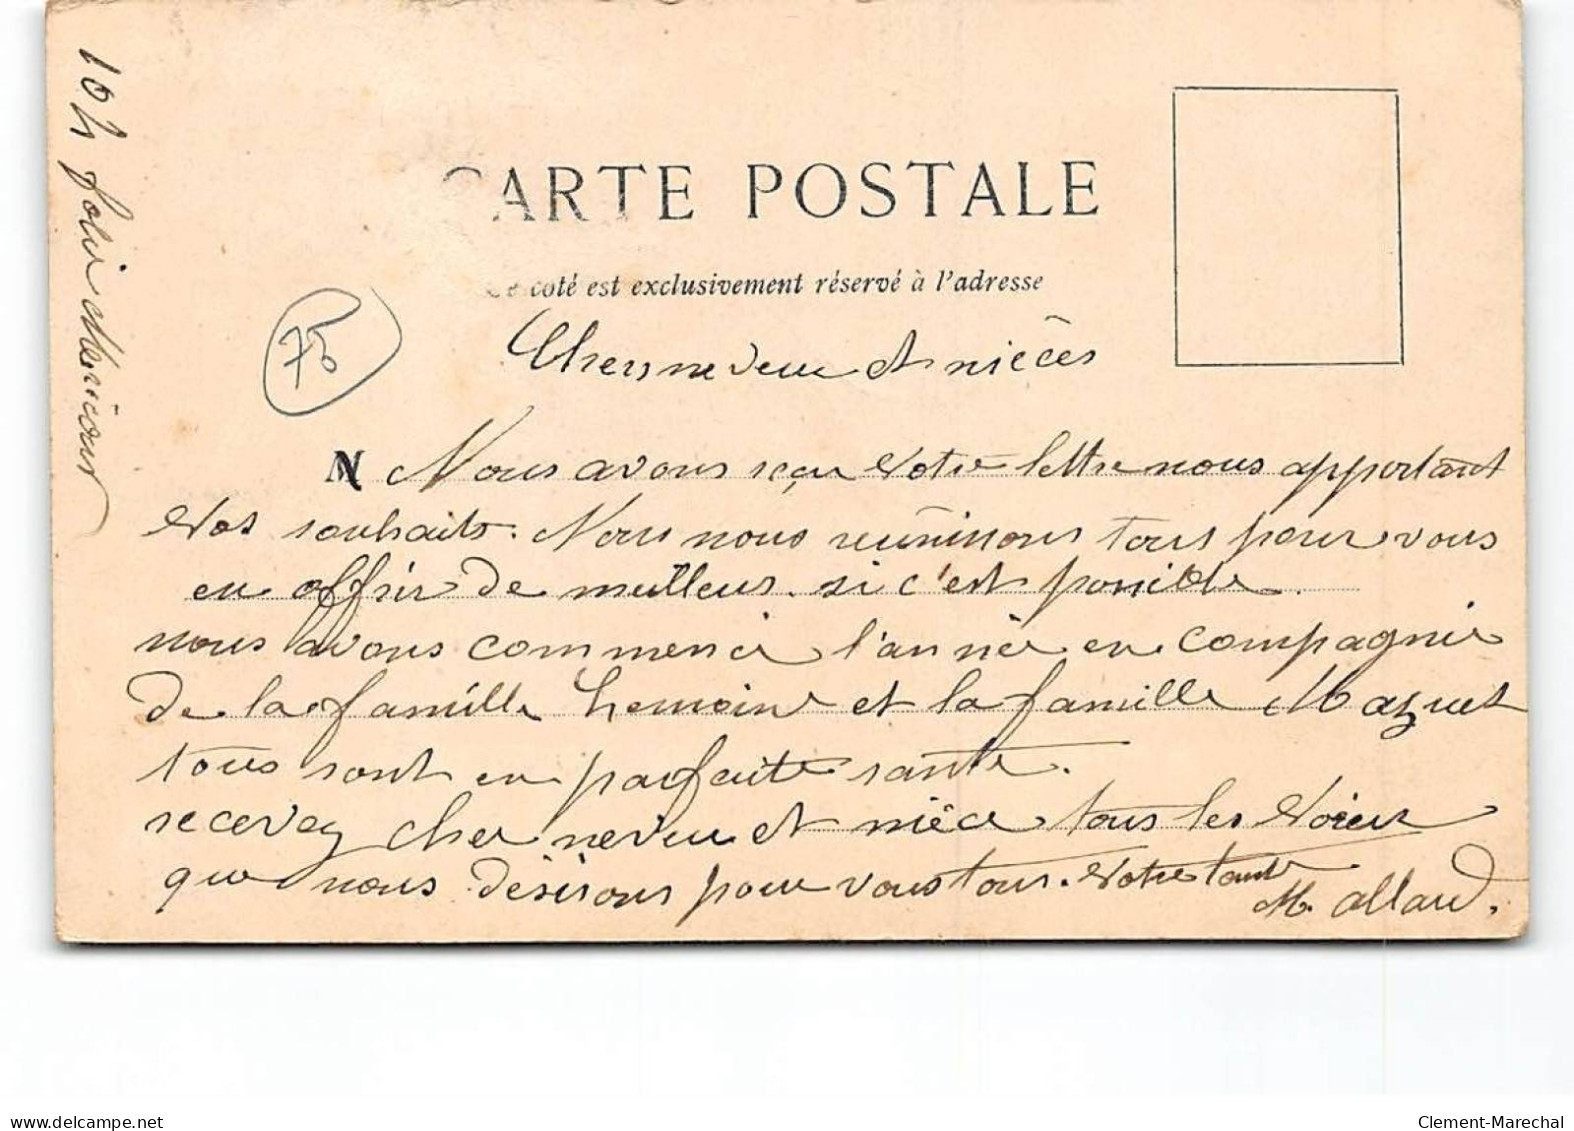 104 folie Méricour
CARTE POSTALE
Ce coté est exclusivement réservé à l'adresse
75
Chers neveux et nièces
N Nous avons reçu votre lettre nous apportant
vos souhaits. Nous nous réunissons tous pour vous
en offrir de meilleurs si c'est possible.
nous avons commencé l'année en compagnie
de la famille Lemoine et la famille Mazuet
tous sont en parfaite santé.
recevez cher neveu et nièce tous les voeux
que nous désirons pour vous tous. Votre tante
M. allard.
delcampe.net
Clement-Marechal